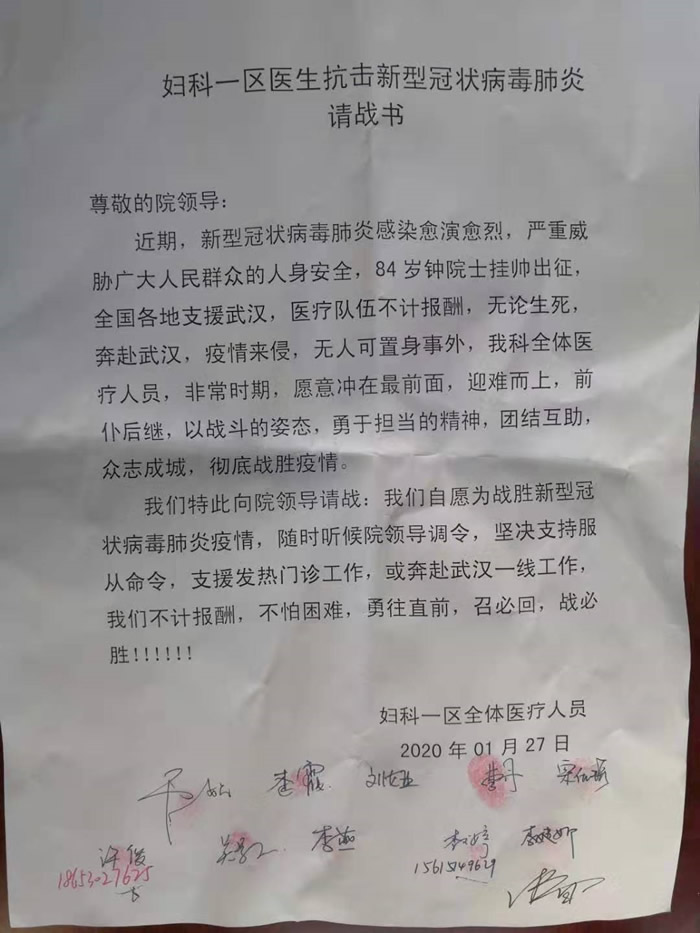 妇科一区医生抗击新型冠状病毒肺炎
请战书
尊敬的院领导：
近期，新型冠状病毒肺炎感染愈演愈烈，严重威
胁广大人民群众的人身安全，84 岁钟院士挂帅出征，
全国各地支援武汉，医疗队伍不计报酬，无论生死，
奔赴武汉，疫情来侵，无人可置身事外，我科全体医
疗人员，非常时期，愿意冲在最前面，迎难而上，前
仆后继，以战斗的姿态，勇于担当的精神，团结互助，
众志成城，彻底战胜疫情。
我们特此向院领导请战：我们自愿为战胜新型冠
状病毒肺炎疫情，随时听候院领导调令，坚决支持服
从命令，支援发热门诊工作，或奔赴武汉一线工作，
我们不计报酬，不怕困难，勇往直前，召必回，战必
胜!!!!!!
妇科一区全体医疗人员
2020 年 01 月 27 日
李霞
李燕
许俊
15615149629